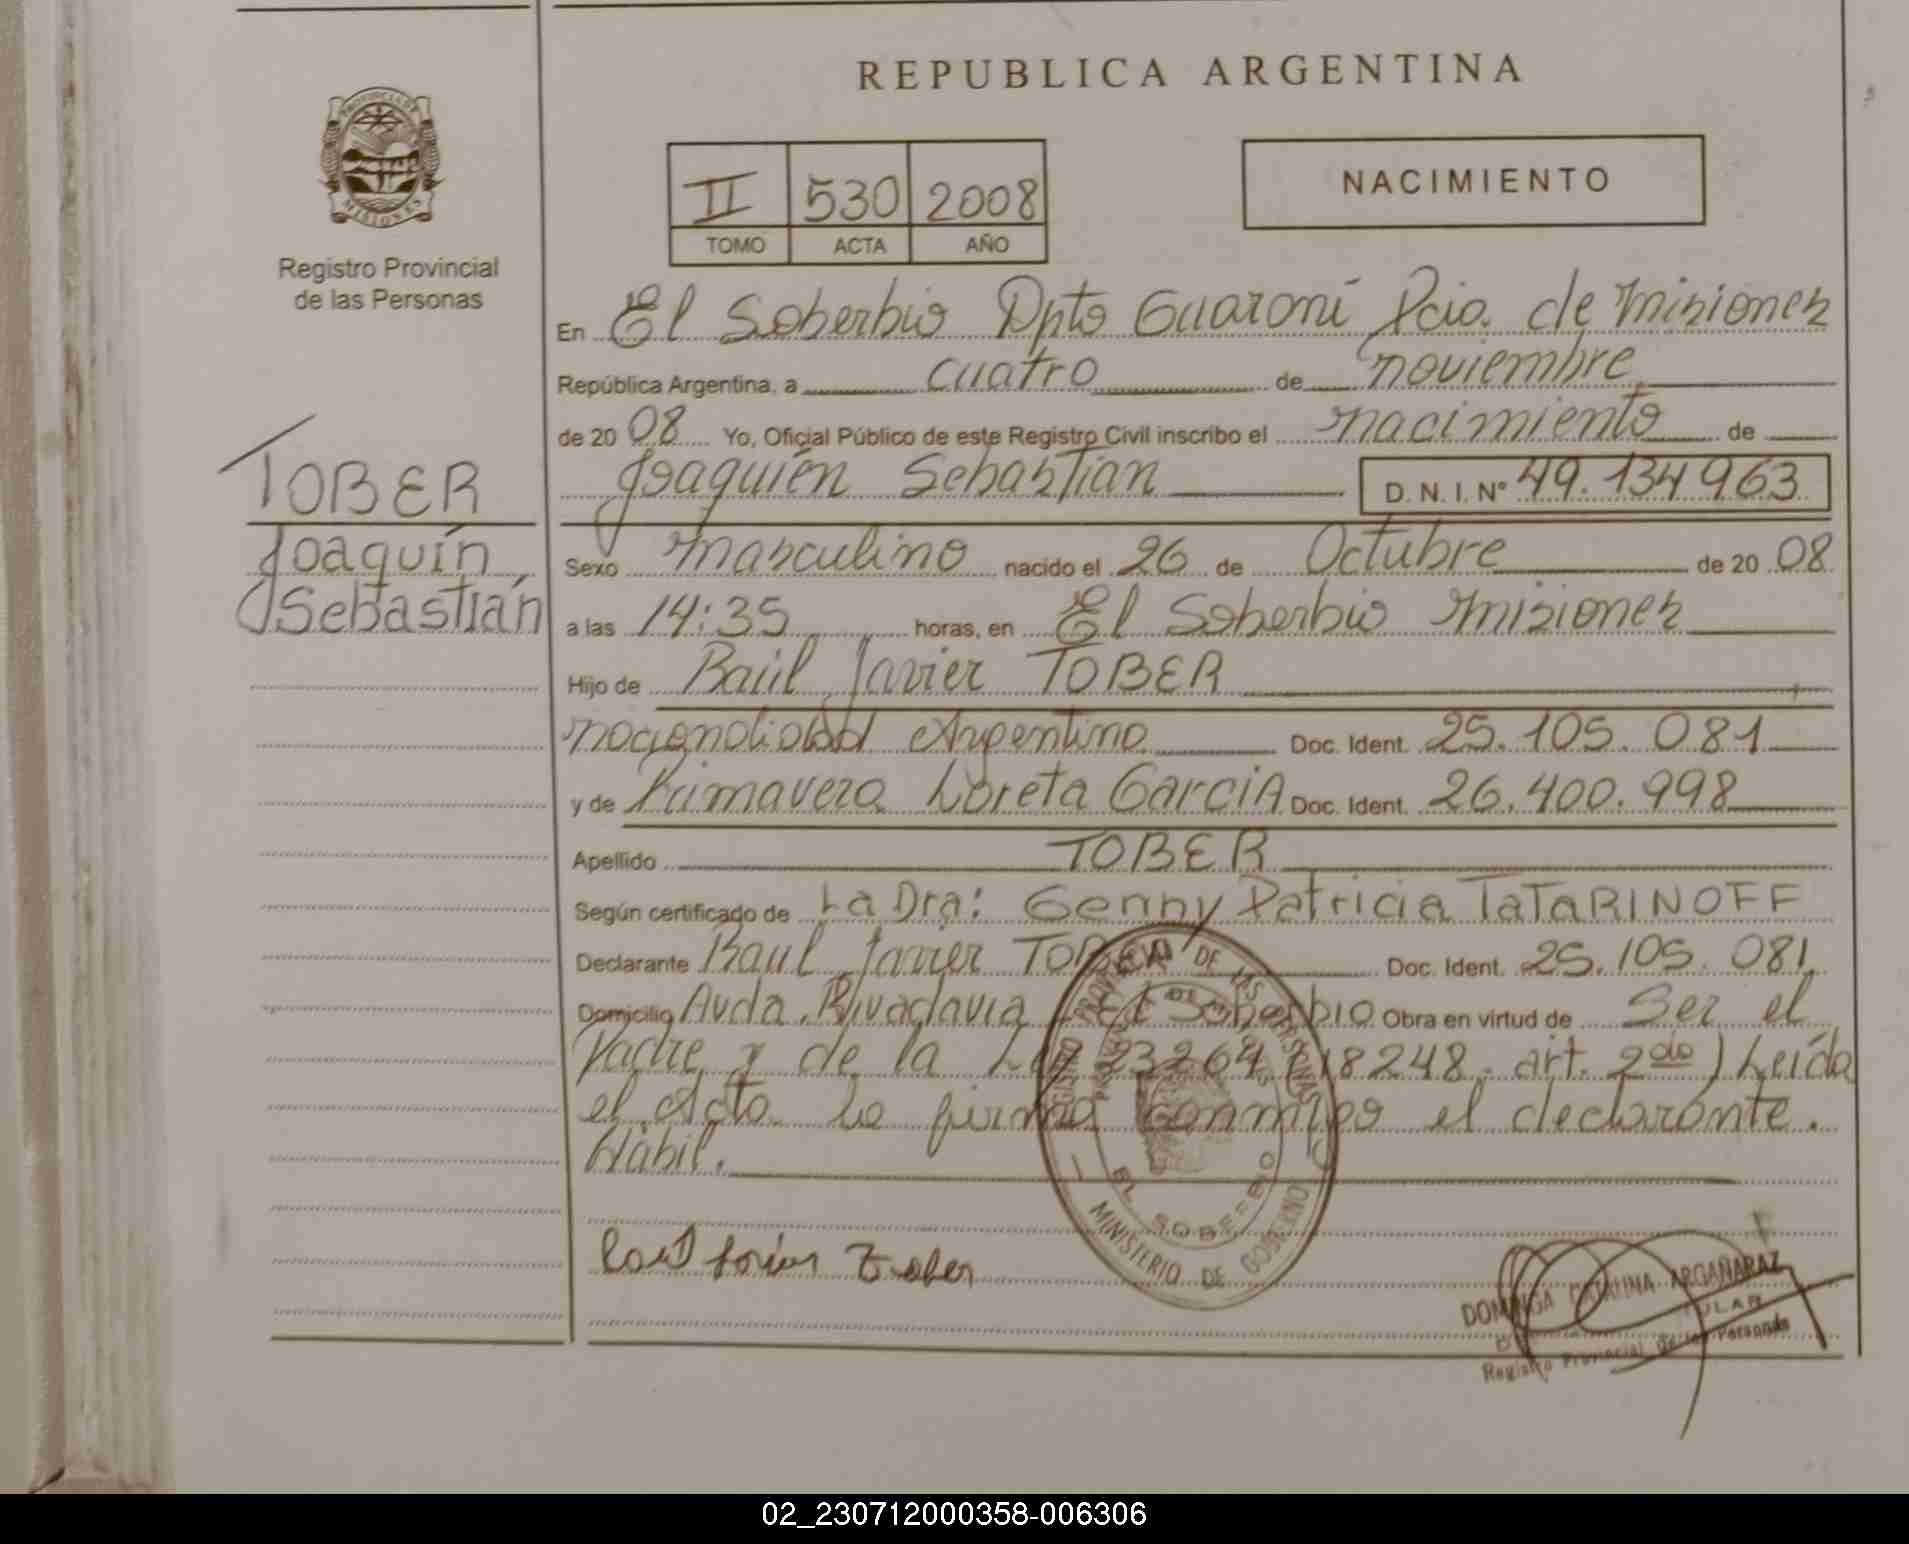 REPUBLICA ARGENTINA
PROVINCIA DE
MISIONES
Registro Provincial
de las Personas
II 530 2008
TOMO ACTA AÑO
NACIMIENTO
En El Soberbio Dpto Guaraní Pcia. de Misiones
República Argentina, a cuatro de noviembre
de 2008 Yo, Oficial Público de este Registro Civil inscribo el nacimiento de
Joaquién Sebastian D. N. I. Nº 49.134963
TOBER
Joaquín
Sebastián
Sexo masculino nacido el 26 de Octubre de 2008
a las 14:35 horas, en El Soberbio Misiones
Hijo de Raúl Javier TOBER
nacionalidad Argentino Doc. Ident. 25.105.081
y de Primavera Loreta GarciA Doc. Ident. 26.400.998
Apellido TOBER
Según certificado de La Dra: Genny Patricia TATARINOFF
Declarante Raul Javier TOBER Doc. Ident. 25.105.081
Domicilio Avda. Rivadavia El Soberbio Obra en virtud de Ser el
Padre y de la Ley 23264 (18248. art. 2do) Leída
el Acta la firma conmigo el declarante.
Hábil.
REGISTRO PROVINCIAL DE LAS PERSONAS
EL SOBERBIO
MINISTERIO DE GOBIERNO
Tober
DOMINGA CATALINA ARGAÑARAZ
TITULAR
Registro Provincial de las Personas
02_230712000358-006306